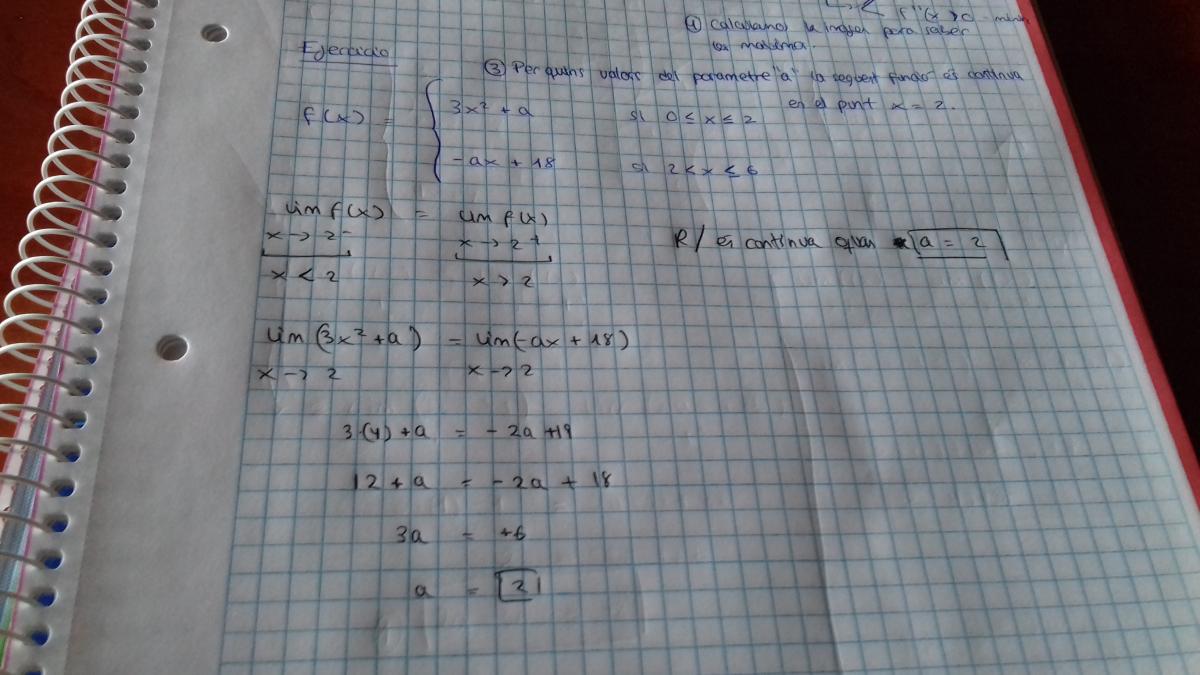 f''(x) > 0
① Calculamos la imagen para saber
los maximos.
Ejercicio
③ Per quins valors del parametre "a" la seguent funció és continua
en el punt x = 2.
f(x) = { 3x² + a si 0 ≤ x ≤ 2
-ax + 18 si 2 < x ≤ 6
lim f(x) = lim f(x)
x → 2- x → 2+
x < 2 x > 2
R/ és continua quan a = 2
lim (3x² + a) = lim (-ax + 18)
x → 2 x → 2
3·(4) + a = - 2a + 18
12 + a = - 2a + 18
3a = +6
a = 2